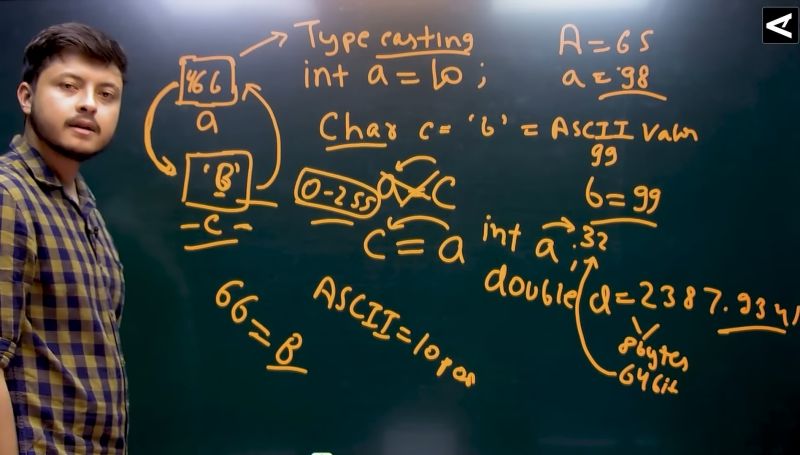 466
a
'B'
-c-
Type casting
int a = 10 ;
A = 65
a = 98
Char c = 'b' = ASCII Value
99
b = 99
0-255
a = c
c = a
int a, 32
double d = 2387.934
8bytes
64bit
66 = B
ASCII =